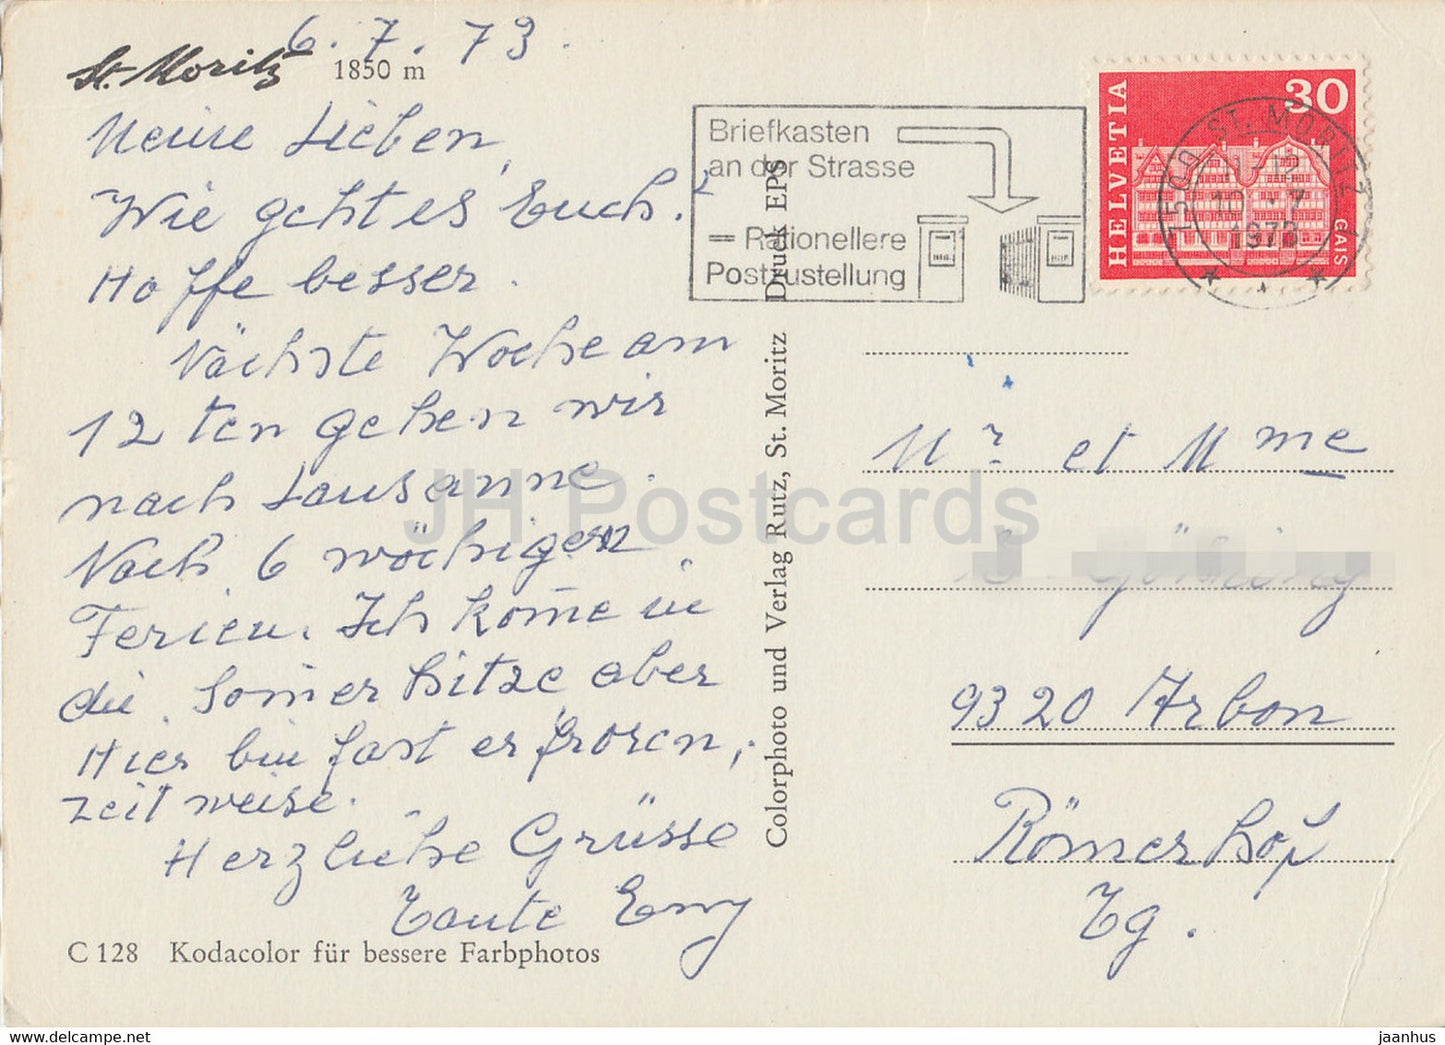 6.7.73.
St. Moritz 1850 m
Meine Lieben,
Wie geht es Euch?
Hoffe besser.
Nächste Woche am
12 ten gehen wir
nach Lausanne.
Nach 6 wöchigen
Ferien. Ich kom̄e in
die Som̄er hitze aber
Hier bin fast erfroren,
zeit weise.
Herzliche Grüsse
Tante Emy
C 128 Kodacolor für bessere Farbphotos
Colorphoto und Verlag Rutz, St. Moritz Druck EPS
Briefkasten
an der Strasse
= Rationellere
Postzustellung
HELVETIA
30
GAIS
7500 ST. MORITZ 1
11-12
10.-7
1973
Mr et Mme
9320 Arbon
Römerhof
Tg.
JH Postcards
www.delcampe.net
jaanhus